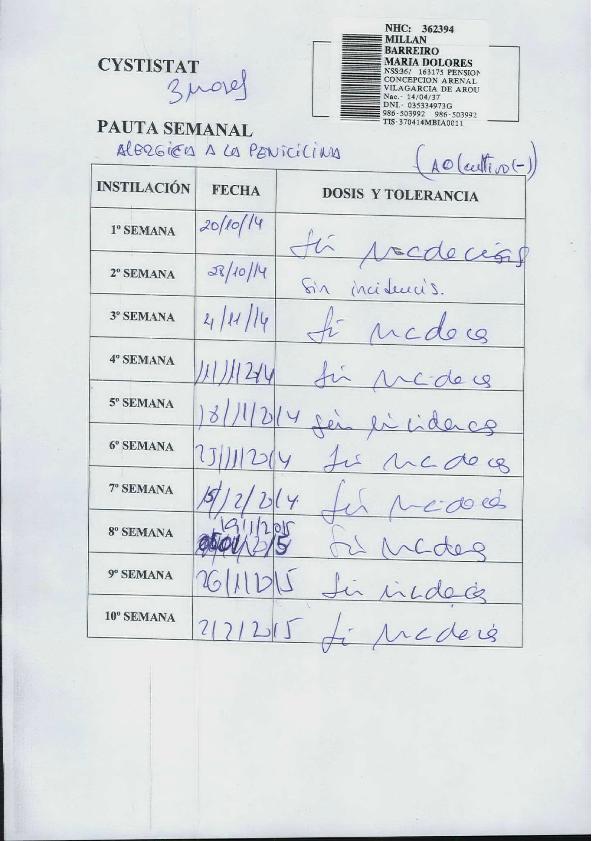 NHC: 362394
MILLAN
BARREIRO
MARIA DOLORES
NSS:36/ 163175 PENSION
CONCEPCION ARENAL
VILAGARCIA DE AROU
Nac.- 14/04/37
DNI.- 035334973G
986-503992 986-503992
TIS-370414MBIA0011
CYSTISTAT
3 meses
PAUTA SEMANAL
ALERGICA A LA PENICILINA
(cultivo (-))
INSTILACIÓN FECHA DOSIS Y TOLERANCIA
1º SEMANA 20/10/14 Sin incidencias
2º SEMANA 28/10/14 Sin incidencias.
3º SEMANA 4/11/14 Sin incidencias
4º SEMANA 11/11/2014 Sin incidencias
5º SEMANA 18/11/2014 Sin incidencias
6º SEMANA 25/11/2014 Sin incidencias
7º SEMANA 15/12/2014 Sin incidencias
8º SEMANA 19/1/2015 Sin incidencias
9º SEMANA 26/1/2015 Sin incidencias
10º SEMANA 2/2/2015 Sin incidencias